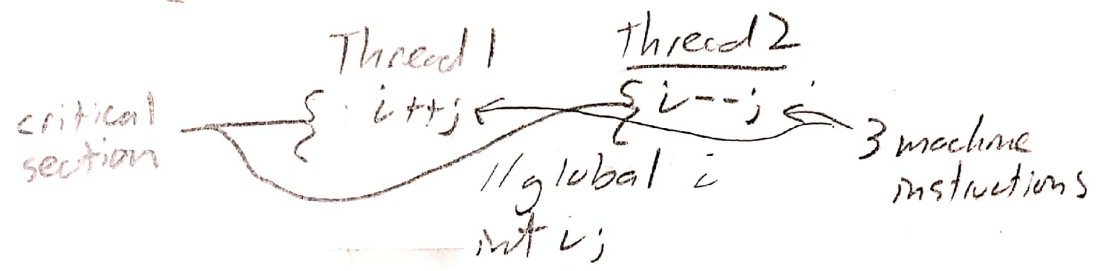 Thread 1
thread 2
critical
section
{ i++;
{ i--;
3 machine
instructions
// global i
int i;